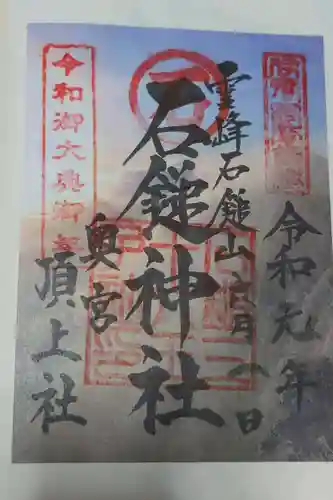 令和元年
霊峰石鎚山 六月八日
石鎚神社
奥宮
頂上社
令和御大典
石